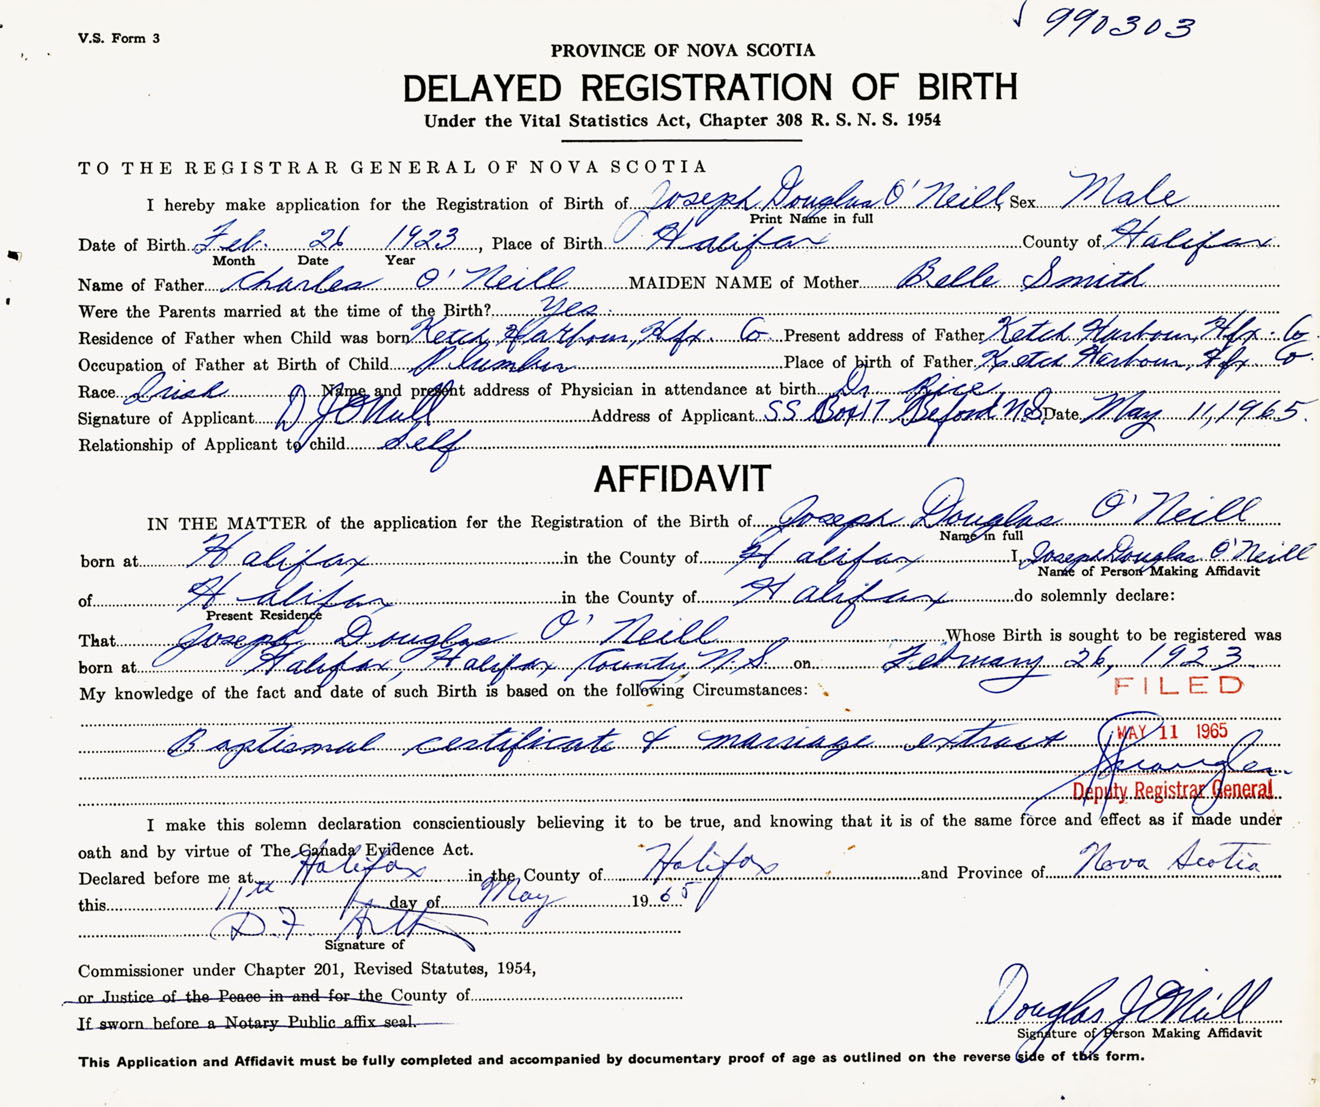 V.S. Form 3
990303
PROVINCE OF NOVA SCOTIA
DELAYED REGISTRATION OF BIRTH
Under the Vital Statistics Act, Chapter 308 R. S. N. S. 1954
TO THE REGISTRAR GENERAL OF NOVA SCOTIA
I hereby make application for the Registration of Birth of Joseph Douglas O'Neill, Sex Male
Print Name in full
Date of Birth Feb. 26 1923, Place of Birth Halifax County of Halifax
Month Date Year
Name of Father Charles O'Neill MAIDEN NAME of Mother Belle Smith
Were the Parents married at the time of the Birth? Yes
Residence of Father when Child was born Ketch Harbour, Hfx. Co Present address of Father Ketch Harbour, Hfx. Co.
Occupation of Father at Birth of Child Plumber Place of birth of Father Ketch Harbour, Hfx Co.
Race Irish Name and present address of Physician in attendance at birth Dr. Rice
Signature of Applicant D J O'Neill Address of Applicant SS Box 17 Beford N.S. Date May 11, 1965.
Relationship of Applicant to child Self
AFFIDAVIT
IN THE MATTER of the application for the Registration of the Birth of Joseph Douglas O'Neill
Name in full
born at Halifax in the County of Halifax I, Joseph Douglas O'Neill
Name of Person Making Affidavit
of Halifax in the County of Halifax do solemnly declare:
Present Residence
That Joseph Douglas O'Neill Whose Birth is sought to be registered was
born at Halifax, Halifax County, N.S. on February 26, 1923.
My knowledge of the fact and date of such Birth is based on the following Circumstances:
FILED
Baptismal certificate & marriage extract
MAY 11 1965
Deputy Registrar General
I make this solemn declaration conscientiously believing it to be true, and knowing that it is of the same force and effect as if made under
oath and by virtue of The Canada Evidence Act.
Declared before me at Halifax in the County of Halifax and Province of Nova Scotia
this 11th day of May 1965
D.F.
Signature of
Commissioner under Chapter 201, Revised Statutes, 1954,
or Justice of the Peace in and for the County of
If sworn before a Notary Public affix seal.
Douglas J O'Neill
Signature of Person Making Affidavit
This Application and Affidavit must be fully completed and accompanied by documentary proof of age as outlined on the reverse side of this form.